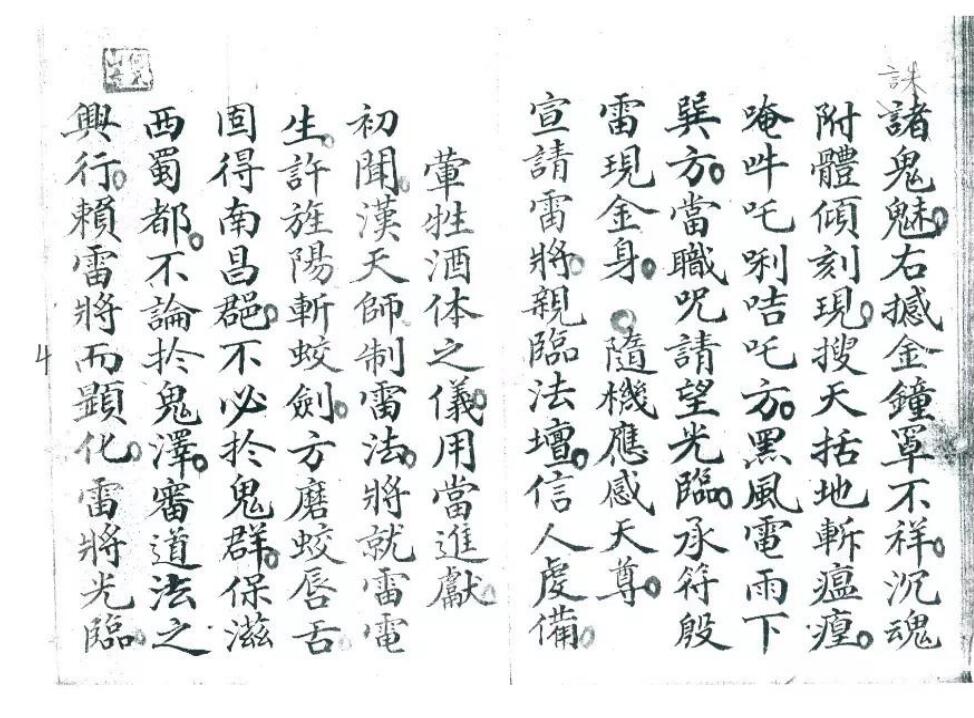 誅
諸鬼魅右撼金鐘罩不祥沉魂
附體傾刻現搜天括地斬瘟瘽
唵吽吒唎咭吒方黑風電雨下
巽方當職呪請望光臨承符殷
雷現金身 隨機應感天尊
宣請雷將親臨法壇信人虔備
葷牲酒体之儀用當進獻
初聞漢天師制雷法將就雷電
生許旌陽斬蛟劍方磨蛟唇舌
固得南昌郡不必於鬼群保滋
西蜀都不論於鬼澤審道法之
興行賴雷將而顕化雷將光臨
4